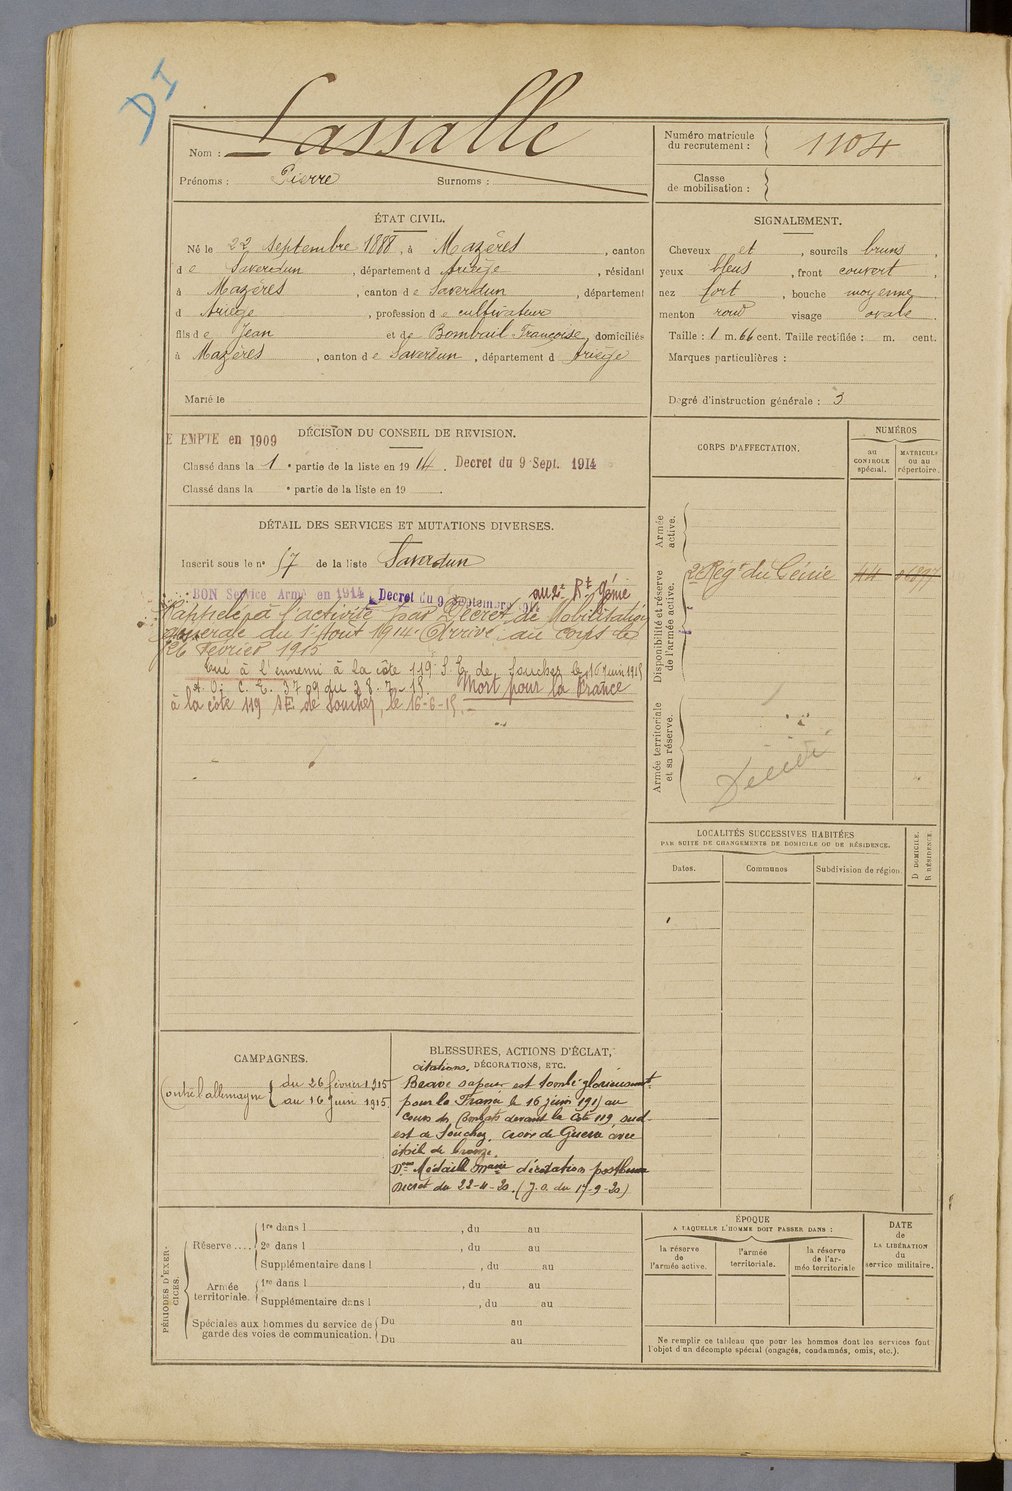 DI
Nom : Lassalle
Prénoms : Pierre Surnoms :
Numéro matricule du recrutement : 1104
Classe de mobilisation :
ÉTAT CIVIL.
Né le 22 septembre 1888, à Mazères, canton
de Saverdun, département d Ariège, résidant
à Mazères, canton de Saverdun, département
d Ariège, profession de cultivateur
fils de Jean et de Bombail Françoise, domiciliés
à Mazères, canton de Saverdun, département d Ariège
Marié le
SIGNALEMENT.
Cheveux et, sourcils bruns,
yeux bleus, front couvert,
nez fort, bouche moyenne
menton rond visage ovale
Taille : 1 m. 66 cent. Taille rectifiée : m. cent.
Marques particulières :
Degré d'instruction générale : 3
DÉCISION DU CONSEIL DE REVISION.
E EMPTE en 1909
Classé dans la 1 e partie de la liste en 1914. Decret du 9 Sept. 1914
Classé dans la e partie de la liste en 19 .
DÉTAIL DES SERVICES ET MUTATIONS DIVERSES.
Inscrit sous le n° 57 de la liste Saverdun
BON Service Armé en 1914 Decret du 9 Septembre 1914 au 2e Rt Génie
Rappelé à l'activité par Décret de Mobilisation
générale du 1er Aout 1914. Arrivé au corps le
26 Février 1915
Tué à l'ennemi à la côte 119 S. E. de Souchez le 16 Juin 1915
a. O. C. E. 3709 du 28-7-15. Mort pour la France
à la côte 119 SE de Souchez, le 16-6-15.
CORPS D'AFFECTATION.
NUMÉROS
au CONTROLE spécial.
MATRICULE ou au répertoire.
Armée active.
Disponibilité et réserve de l'armée active.
2e Rég' du Génie 44
Armée territoriale et sa réserve.
LOCALITÉS SUCCESSIVES HABITÉES
PAR SUITE DE CHANGEMENTS DE DOMICILE OU DE RÉSIDENCE.
Dates. Communes Subdivision de région.
D DOMICILE.
R RÉSIDENCE.
CAMPAGNES.
Contre l'allemagne du 26 février 1915
au 16 Juin 1915
BLESSURES, ACTIONS D'ÉCLAT,
citations, DÉCORATIONS, ETC.
Brave sapeur est tombé glorieusement
pour la France le 16 juin 1915 au
cours des combats devant la côte 119, sud
est de Souchez. Croix de Guerre avec
étoile de bronze.
Don Médaille Mre décoration posthume
Décret du 22-4-20. (J. O. du 17-9-20)
PÉRIODES D'EXERCICES.
Réserve....
1re dans l , du au
2e dans l , du au
Supplémentaire dans l , du au
Armée territoriale.
1re dans l , du au
Supplémentaire dans l , du au
Spéciales aux hommes du service de garde des voies de communication.
Du au
Du au
ÉPOQUE
A LAQUELLE L'HOMME DOIT PASSER DANS :
la réserve de l'armée active.
l'armée territoriale.
la réserve de l'armée territoriale
DATE de LA LIBÉRATION du service militaire.
Ne remplir ce tableau que pour les hommes dont les services font
l'objet d'un décompte spécial (engagés, condamnés, omis, etc.).